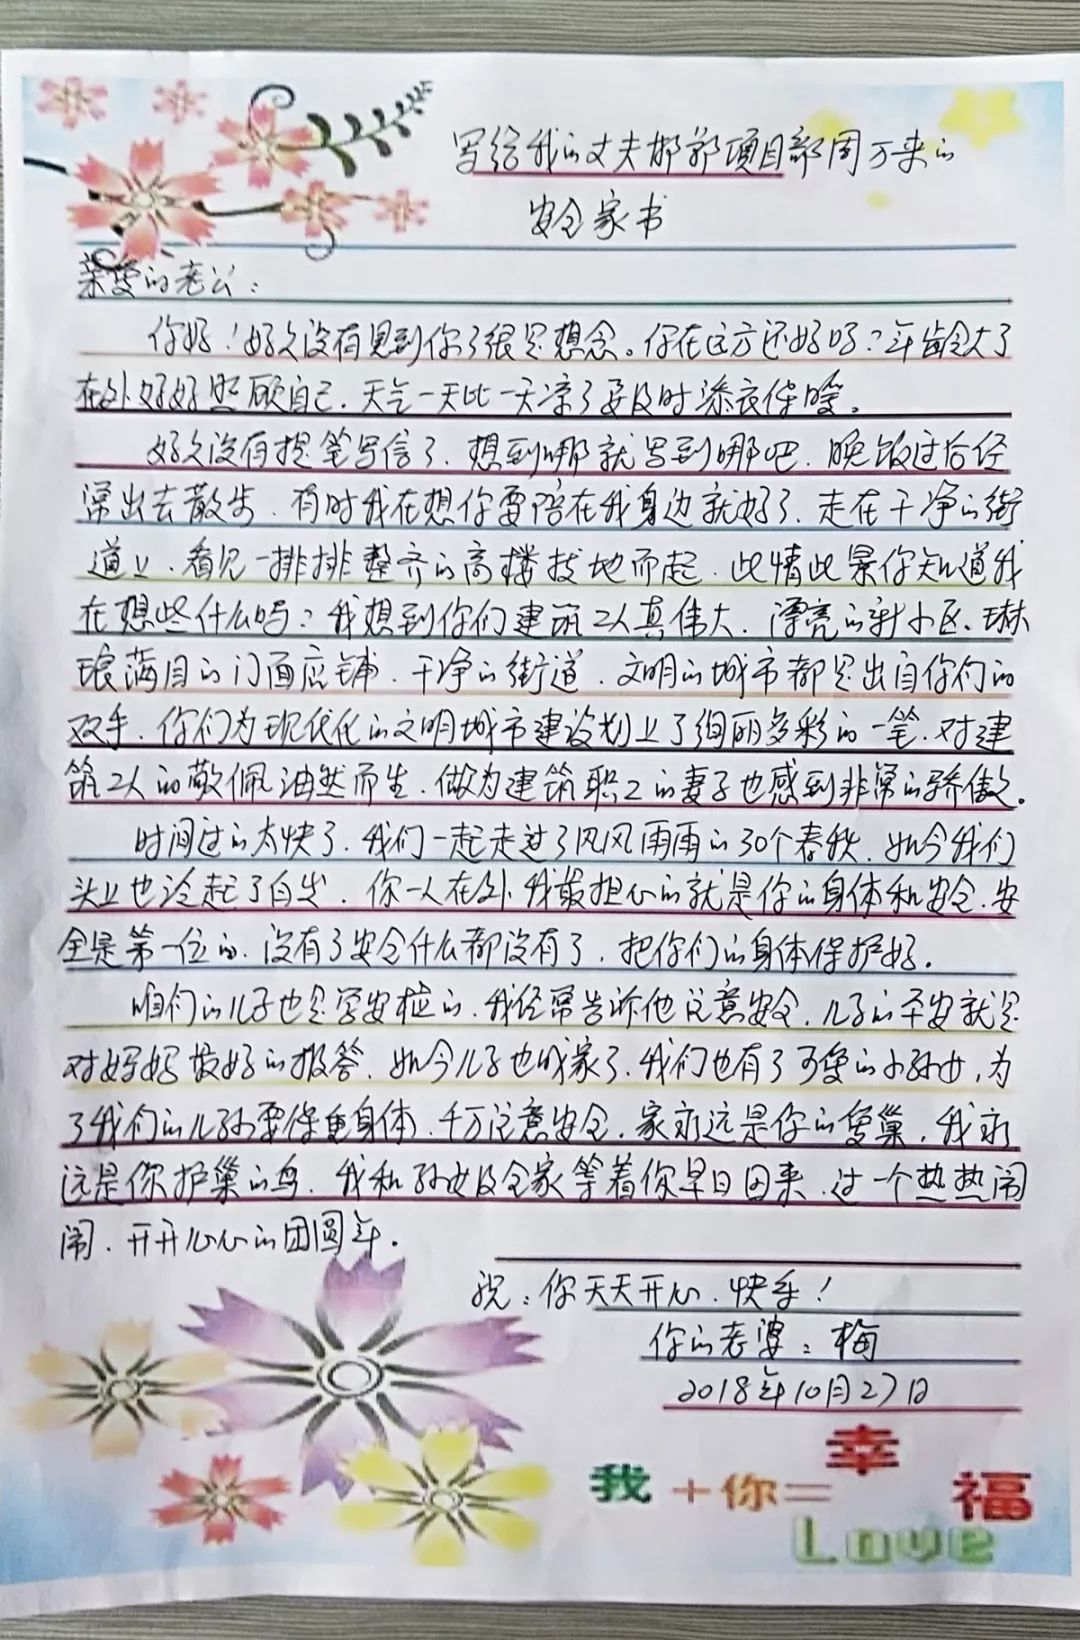 写给我的丈夫邯郸项目部周万来的
安全家书
亲爱的老公：
你好！好久没有见到你了很是想念。你在远方还好吗？年龄大了
在外好好照顾自己．天气一天比一天凉了要及时添衣保暖。
好久没有提笔写信了．想到哪就写到哪吧．晚饭过后经
常出去散步．有时我在想你要陪在我身边就好了．走在干净的街
道上．看见一排排整齐的高楼拔地而起．此情此景你知道我
在想些什么吗？我想到你们建筑工人真伟大．漂亮的新小区、琳
琅满目的门面店铺．干净的街道．文明的城市都是出自你们的
双手．你们为现代化的文明城市建设划上了绚丽多彩的一笔．对建
筑工人的敬佩油然而生．做为建筑职工的妻子也感到非常的骄傲。
时间过的太快了．我们一起走过了风风雨雨的30个春秋．如今我们
头上也泛起了白发．你一人在外我最担心的就是你的身体和安全．安
全是第一位的．没有了安全什么都没有了．把你们的身体保护好。
咱们的儿子也是学安检的．我经常告诉他注意安全．儿子的平安就是
对妈妈最好的报答．如今儿子也成家了．我们也有了可爱的小孙女，为
了我们的儿孙要保重身体．千万注意安全．家永远是你的爱巢．我永
远是你护巢的鸟．我和孙女及全家等着你早日回来．过一个热热闹
闹．开开心心的团圆年．
祝：你天天开心．快乐！
你的老婆：梅
2018年10月27日
我＋你＝幸福
Love